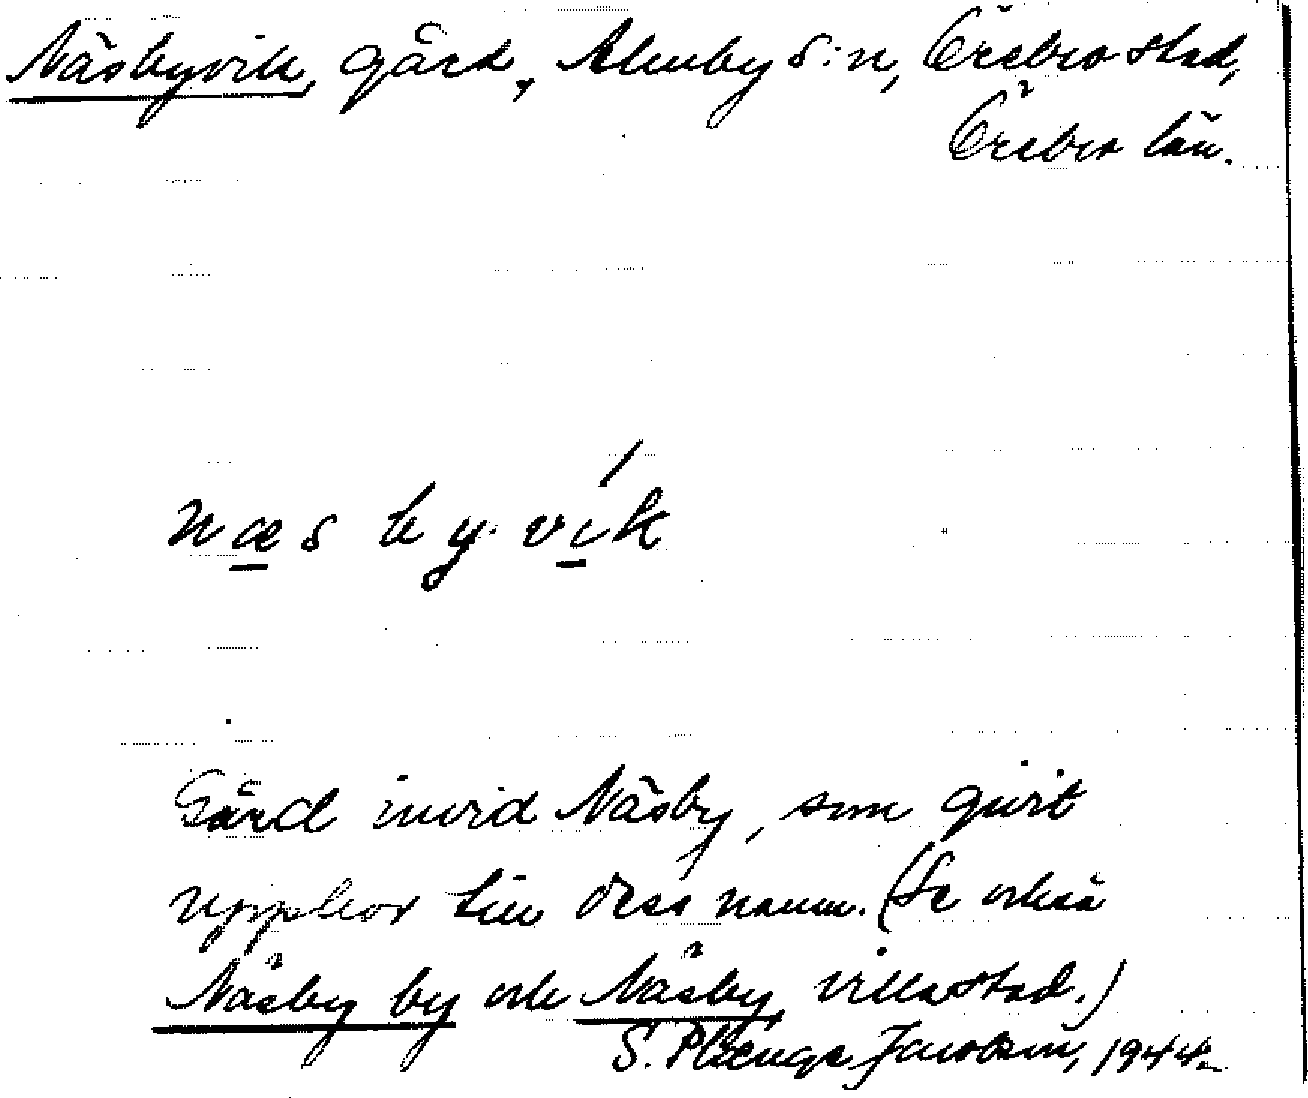 Näsbyvik, gård, Almby s:n, Örebro stad,
Örebro län.
næsby·vik
Gård invid Näsby, som givit
upphov till dess namn. (Se också
Näsby by och Näsby villastad.)
S. Plænge Jacobson, 1944.